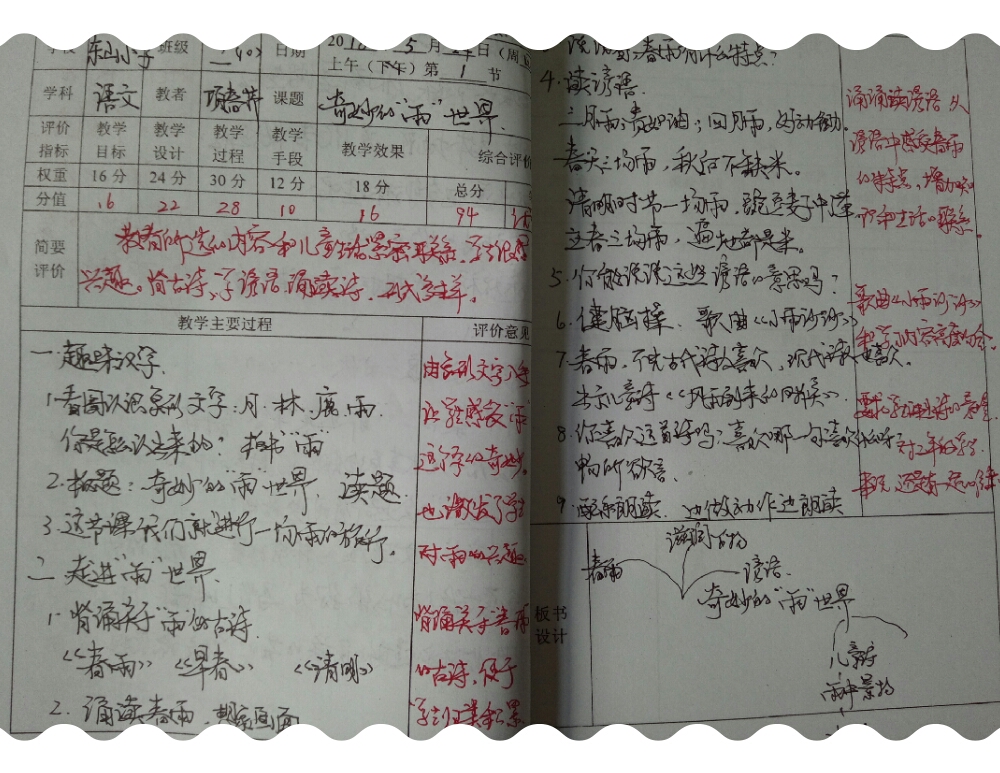 学校 东山小学 班级 二(4) 日期 2016年5月 日(周五
上午(下午)第 1 节
学科 语文 教者 课题 奇妙的"雨"世界
评价指标 教学目标 教学设计 教学过程 教学手段 教学效果 综合评价
权重 16分 24分 30分 12分 18分 总分
分值 16 22 28 10 16 94
简要评价
教者所选的内容和儿童生活紧密联系,学生很感
兴趣。背古诗、学谚语、诵读诗,形式多样。
教学主要过程 评价意见
一、趣味识字
1.看图认识象形文字:月、林、鹿、雨
你是怎么认出来的? 板书"雨"
2.板题:奇妙的"雨"世界、读题
3.这节课我们就进行一场雨的旅行。
二、走进"雨"世界
1.背诵关于"雨"的古诗
《春雨》 《早春》 《清明》
2.诵读春雨,想象画面
由象形文字入手
让学生感受"雨"
这个字的奇妙,
也激发了学生
对雨的兴趣。
背诵关于春雨
的古诗,便于
学生归类积累
说说 春雨有什么特点?
4.读谚语
三月雨,贵如油;四月雨,好动锄。
春天三场雨,秋后不缺米。
清明时节一场雨,豌豆麦子中
立春三场雨,遍地都是米。
5.你能说说这些谚语的意思吗?
6.健脑操、歌曲《小雨沙沙》
7.春雨,不光古代诗人喜欢,现代诗人也喜欢。
出示儿童诗《 》
8.你喜欢这首诗吗?喜欢哪一句
畅所欲言
9.配乐朗读、边做动作边朗读
诵读谚语,从
谚语中感受春雨
的特点,增加知
识和生活的联系。
歌曲《小雨沙沙》
和学习内容
对二年级学生
来说,还是有一定的
板书设计
春雨
滋润万物
谚语
奇妙的"雨"世界
儿童诗
雨中景物